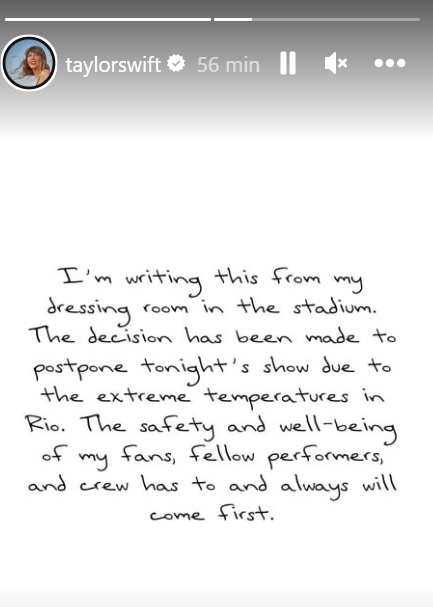 taylorswift 56 min
I'm writing this from my
dressing room in the stadium.
The decision has been made to
postpone tonight's show due to
the extreme temperatures in
Rio. The safety and well-being
of my fans, fellow performers,
and crew has to and always will
come first.